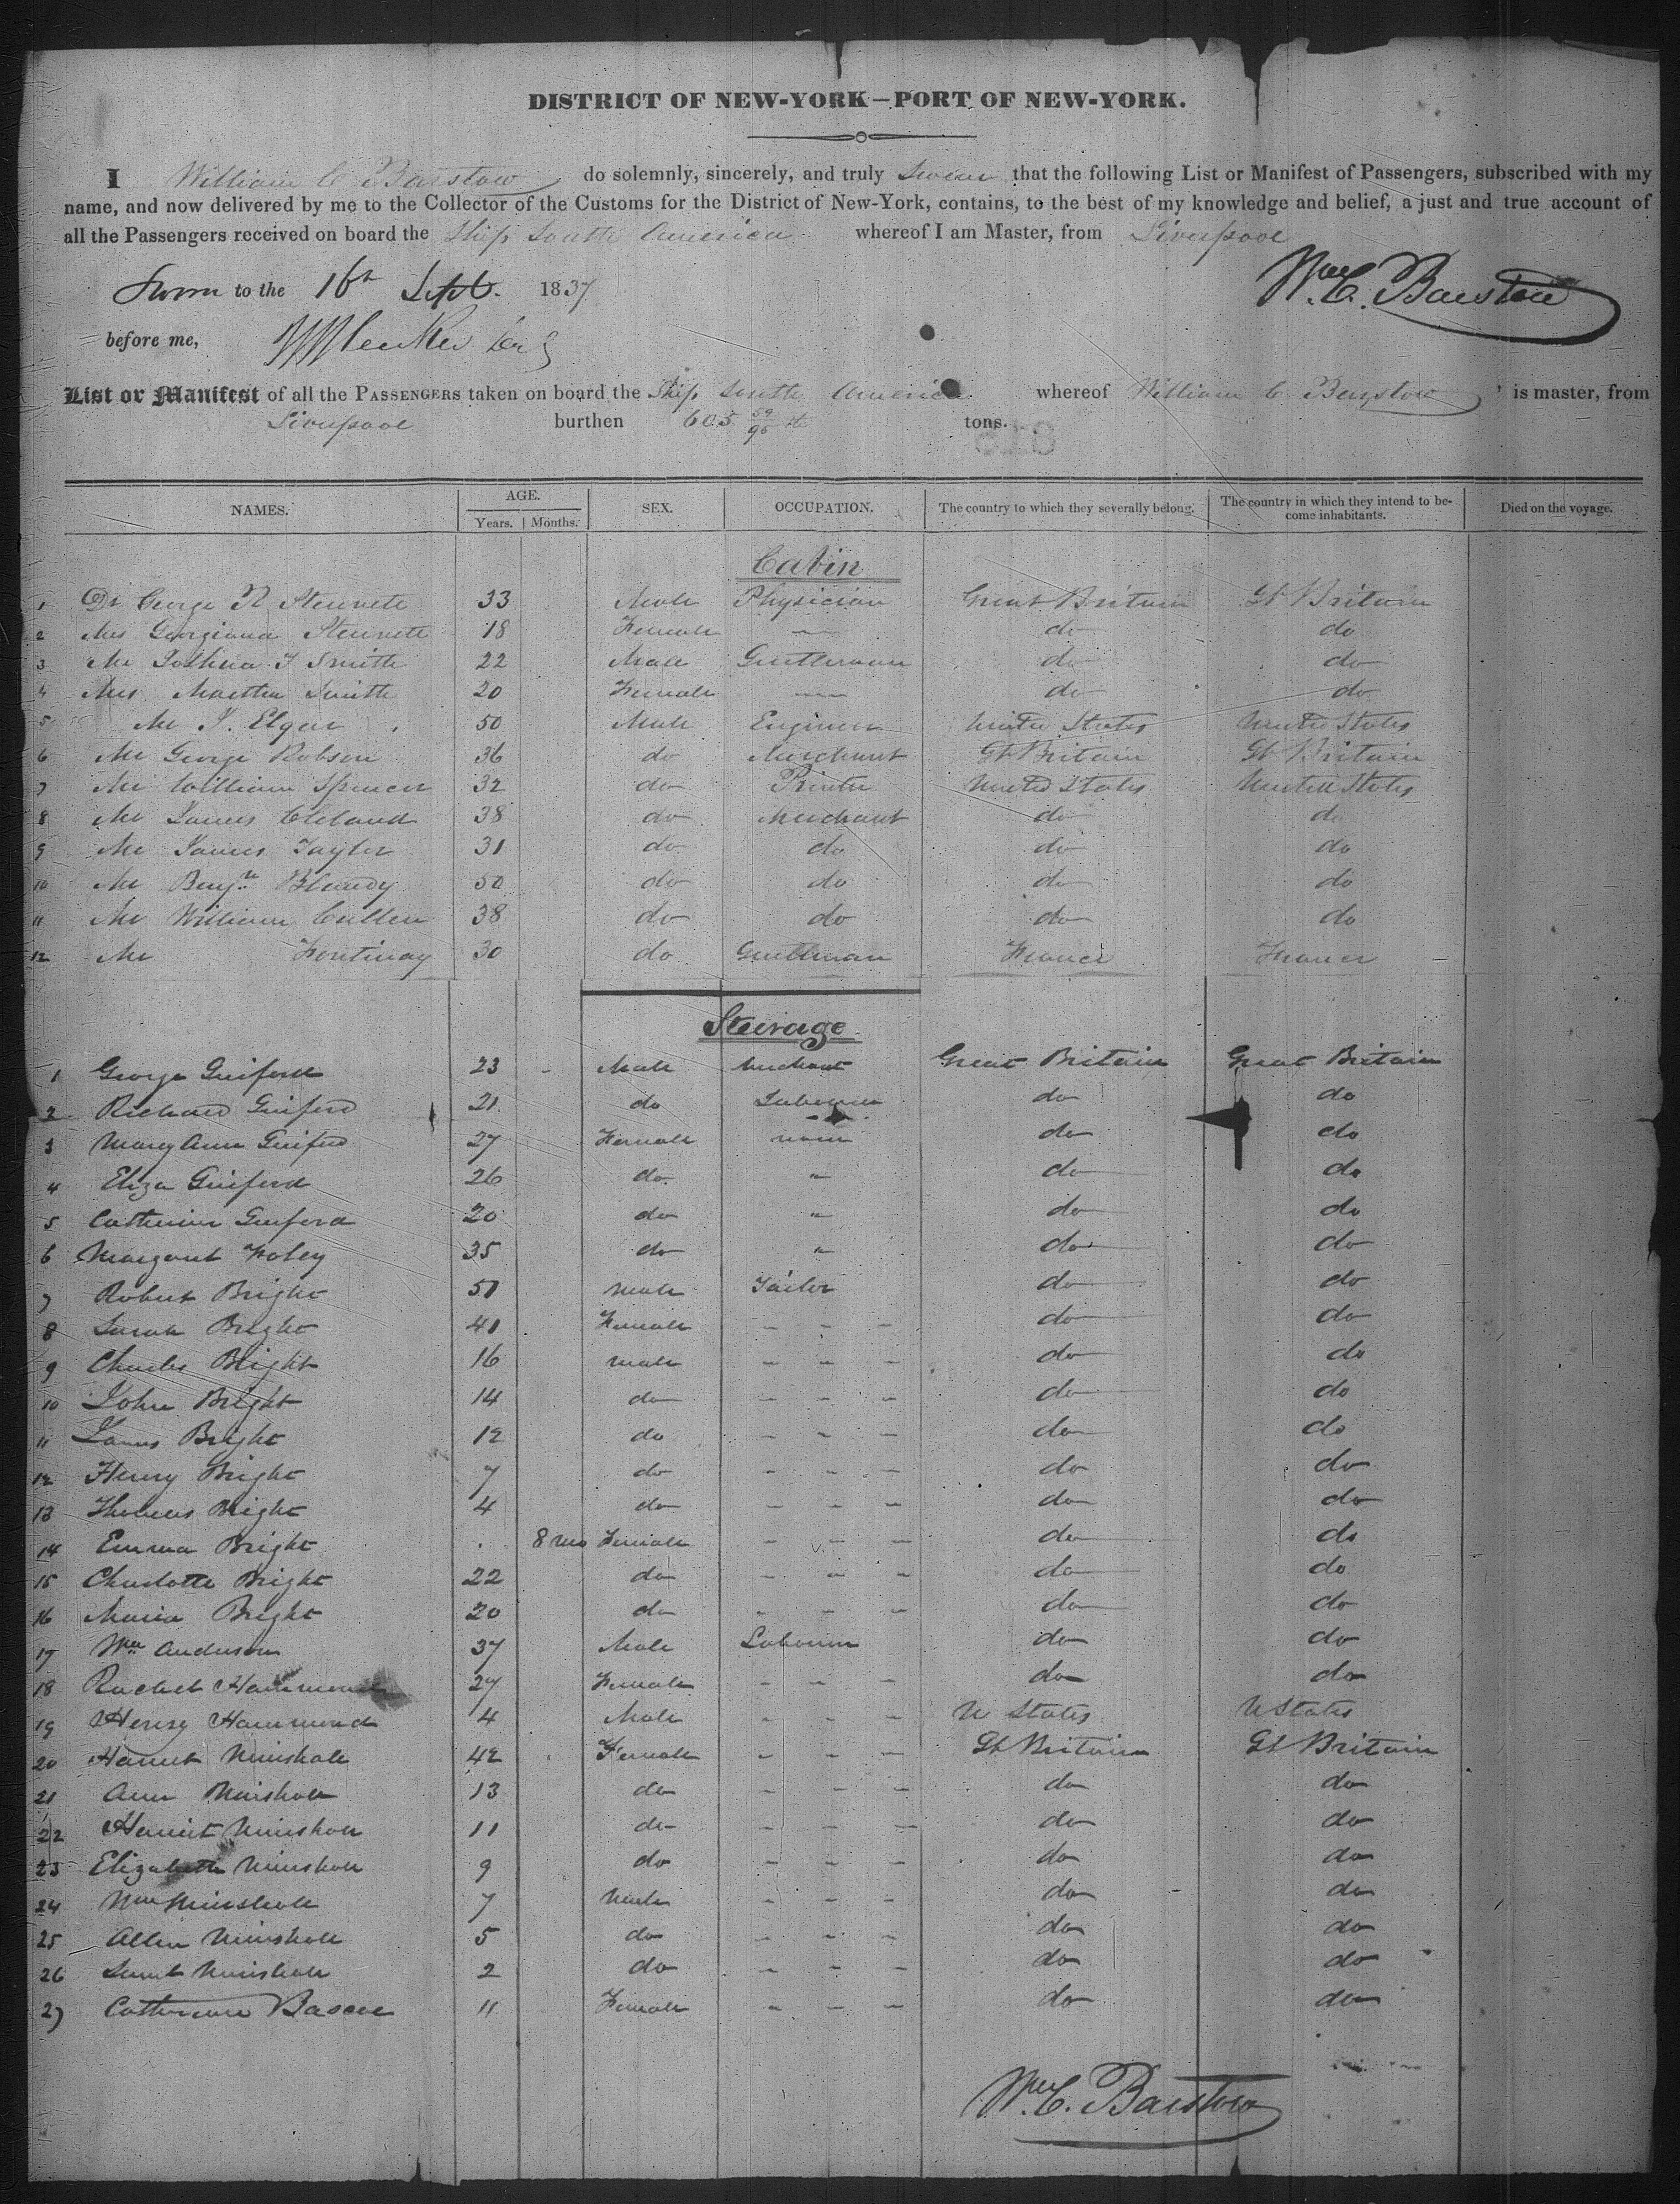 DISTRICT OF NEW-YORK—PORT OF NEW-YORK.
I William C Barstow do solemnly, sincerely, and truly Swear that the following List or Manifest of Passengers, subscribed with my
name, and now delivered by me to the Collector of the Customs for the District of New-York, contains, to the best of my knowledge and belief, a just and true account of
all the Passengers received on board the Ship South America whereof I am Master, from Liverpool
Sworn to the 16th Sept. 1837
Wm C. Barstow
before me,
List or Manifest of all the PASSENGERS taken on board the Ship South America whereof William C Barstow is master, from
Liverpool burthen 605 59/95 tons.
NAMES. AGE. SEX. OCCUPATION. The country to which they severally belong. The country in which they intend to be-
come inhabitants. Died on the voyage.
Years. Months.
Cabin
1 Dr George R 33 Male Physician Great Britain Gt Britain
2 Mrs Georgiana 18 Female do do
3 Mr Joshua T Smith 22 Male Gentleman do do
4 Mrs Martha Smith 20 Female do do
5 Mr J. Elgar 50 Male Engineer United States United States
6 Mr George Robson 36 do Merchant Gt Britain Gt Britain
7 Mr William Spencer 32 do Printer United States United States
8 Mr James Cleland 38 do Merchant do do
9 Mr James Taylor 31 do do do do
10 Mr Benjn Blundy 50 do do do do
11 Mr William Cullen 38 do do do do
12 Mr Fontinay 30 do Gentleman France France
Steerage
1 George Guiford 23 Male Merchant Great Britain Great Britain
2 Richard Guiford 21 do Labourer do do
3 Mary Ann Guiford 27 Female none do do
4 Eliza Guiford 26 do " do do
5 Catherine Guiford 20 do " do do
6 Margaret Foley 35 do " do do
7 Robert Bright 51 Male Tailor do do
8 Sarah Bright 41 Female - - - do do
9 Charles Bright 16 Male - - - do do
10 John Bright 14 do - - - do do
11 James Bright 12 do - - - do do
12 Henry Bright 7 do - - - do do
13 Thomas Bright 4 do - - - do do
14 Emma Bright 8 mos Female - - - do do
15 Charlotte Bright 22 do - - - do do
16 Maria Bright 20 do - - - do do
17 Wm Anderson 37 Male Labourer do do
18 Rachel Hammond 27 Female - - - do do
19 Henry Hammond 4 Male - - - U States U States
20 Harriet Minshall 42 Female - - - Gt Britain Gt Britain
21 Ann Minshall 13 do - - - do do
22 Harriet Minshall 11 do - - - do do
23 Elizabeth Minshall 9 do - - - do do
24 Wm Minshall 7 Male - - - do do
25 Allen Minshall 5 do - - - do do
26 Saml Minshall 2 do - - - do do
27 Catherine Bascoe 11 Female - - - do do
Wm C. Barstow